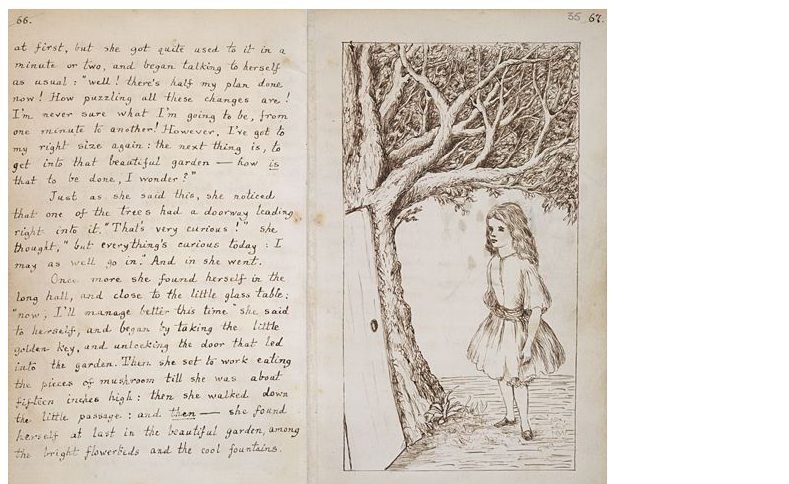 66.
at first, but she got quite used to it in a
minute or two, and began talking to herself
as usual: "well! there's half my plan done
now! How puzzling all these changes are!
I'm never sure what I'm going to be, from
one minute to another! However, I've got to
my right size again: the next thing is, to
get into that beautiful garden — how is
that to be done, I wonder?"
Just as she said this, she noticed
that one of the trees had a doorway leading
right into it. "That's very curious!" she
thought, "but everything's curious today: I
may as well go in." And in she went.
Once more she found herself in the
long hall, and close to the little glass table:
"now, I'll manage better this time" she said
to herself, and began by taking the little
golden key, and unlocking the door that led
into the garden. Then she set to work eating
the pieces of mushroom till she was about
fifteen inches high: then she walked down
the little passage: and then — she found
herself at last in the beautiful garden, among
the bright flowerbeds and the cool fountains.
35 67.